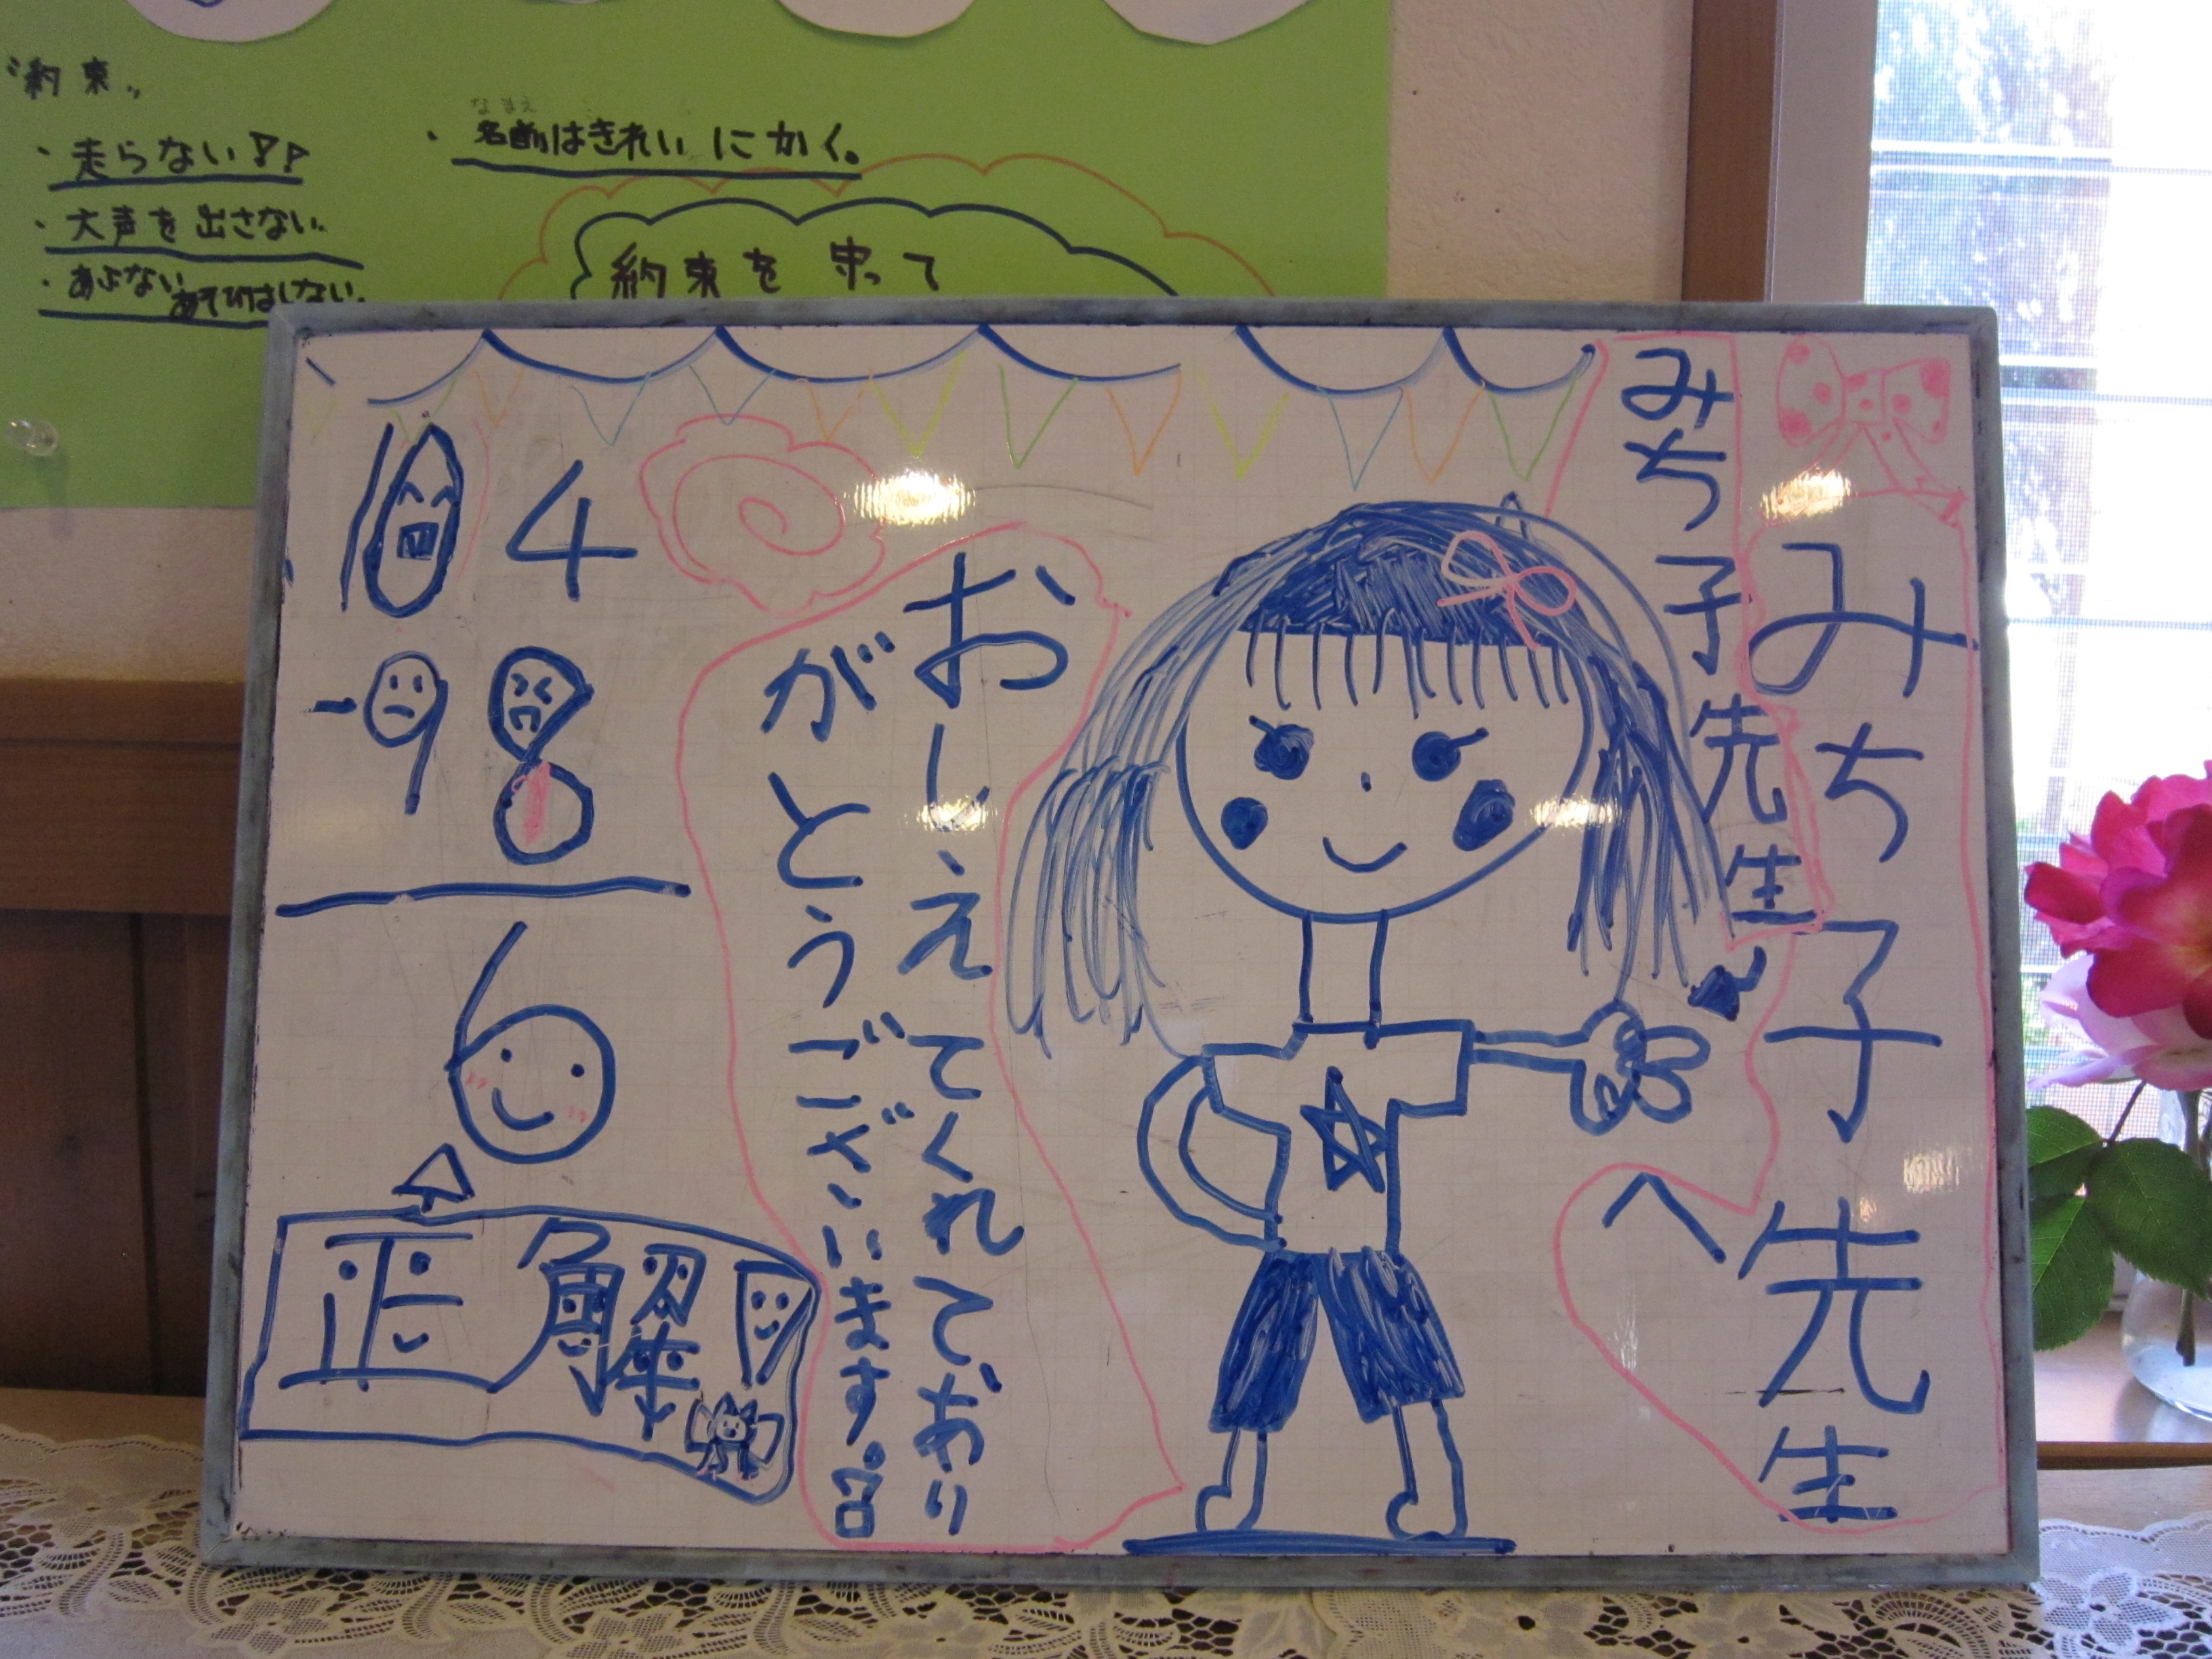 約束
・走らない!!
・大声を出さない
・あぶないあそびはしない。
なまえ
・名前はきれいにかく。
約束を守って
みち子先生
へ
みち子先生
おしえてくれており
がとうございます。
104
-98
6
正解